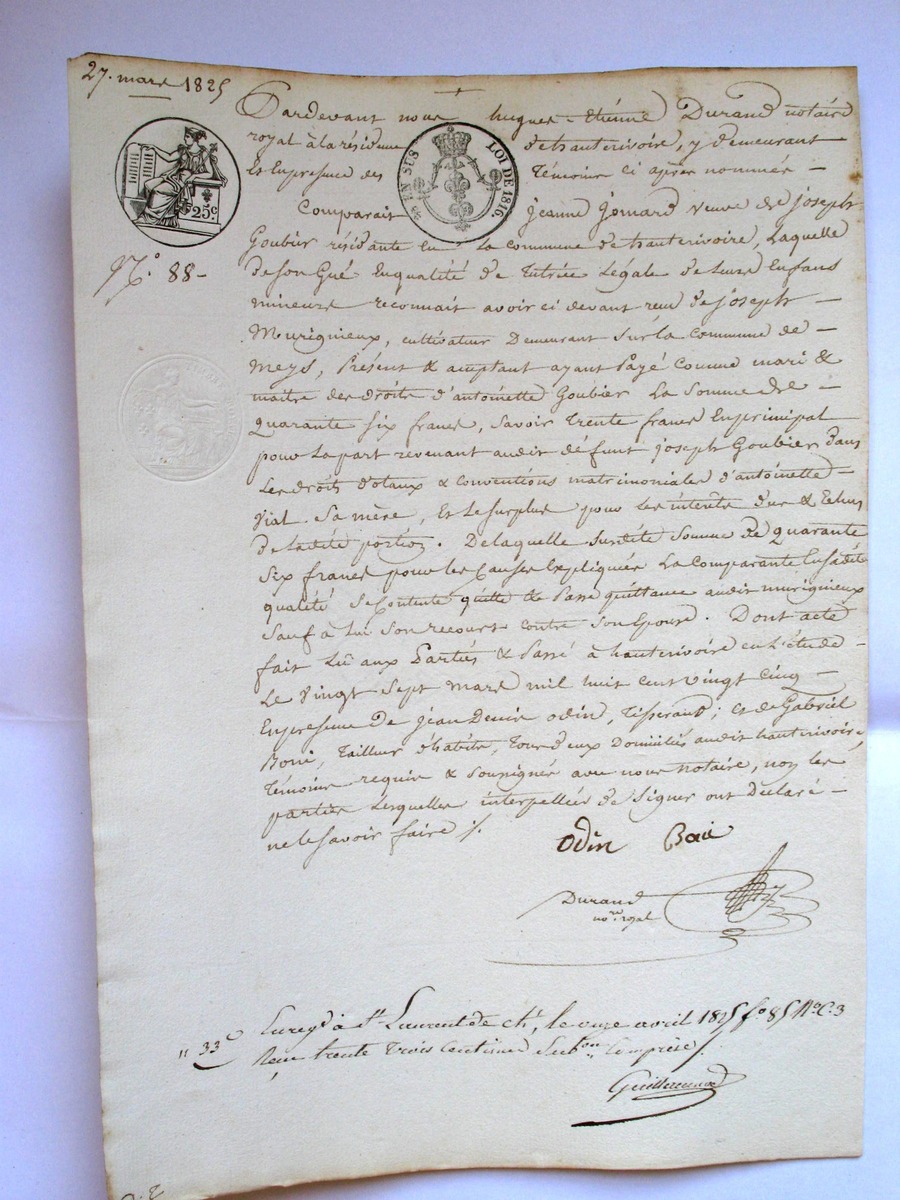 27. mars 1825
Pardevant nous hugues-Etiénne Durand notaire
royal à la résidence dehauterivoire, y demeurant
Et Enpresence des Témoins ci après nommés –
EN SUS LOI DE 1816
25c
Comparait jeanne jomard veuve de joseph
Goubier résidante En La commune dehauterivoire, Laquelle
N.o 88–
deson Gré Enqualité de Tutrice Légale deleurs Enfans
mineurs reconnait avoir ci devant reçu de joseph –
Murignieux, cultivateur Demeurant sur la commune de –
meys, Présent & acceptant ayant Payé comme mari &
maitre des droits d'antoinette Goubier La somme de –
quarante six francs, savoir trente francs Enprincipal
pour La part revenant audit défunt joseph Goubier dans
Les droits dotaux & conventions matrimoniales d'antoinette –
Viat sa mère, Et Lesurplus pour Les intérêts dus & Echus
de Ladite portion. De laquelle susdite somme de quarante
six francs pour les Causes Expliquées La comparante Ensadite
qualité se Contente quitte & Passe quittance audit murignieux
sauf à Lui son recours contre son Epouse. Dont acte
fait Lu aux Parties & Passé à hauterivoire en L'étude –
Le vingt sept mars mil huit cent vingt cinq –
Enpresence de jean Denis odin, Tisserand; et de Gabriel
Boni, Tailleur d'habits, Tous deux Domiciliés audit hauterivoire,
Témoins requis & soussignés avec nous notaire, non les
parties Lesquelles interpellées de signer ont Déclaré –
ne le savoir faire ./.
Odin
Durand
no.re royal
Enreg.é à St. Laurent de Ch.t, le onze avril 1825 f.o 85 R.o C. 3
" 33 c Reçu trente Trois centimes Sub.on Comprise